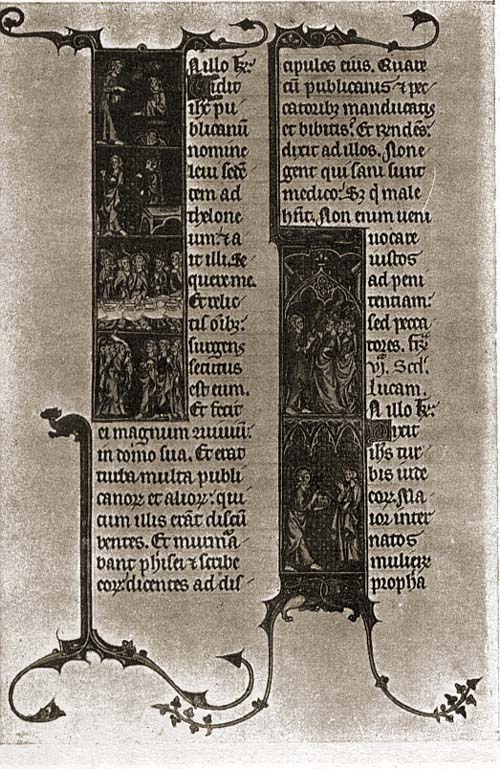 N illo t̄:
Vidit
ihc pu
blicanū
nomine
leui sedē
tem ad
thelone
um: ⁊ a
it illi. Se
quere me.
Et relic
tis oīb:
surgens
secutus
est eum.
Et fecit
ei magnum
in domo sua. Et erat
turba multa publi
canor et alior: qui
cum illis erāt discū
bentes. Et murmᷓa
bant phisei ⁊ scribe
eor dicentes ad dis
cipulos eius. Quare
cū publicanis ⁊ pec
catorib manducatis
et bibitis? Et rn̄dēs:
dixit ad illos. None
gent qui sani sunt
medico: Sz q̄ male
hn̄t. Non enim ueni
uocare
iustos
ad peni
tentiam:
sed pecca
tores.
Scd.
lucam.
N illo t̄:
Dixit
ihs tur
bis iude
or Ma
ior inter
natos
mulier
propha